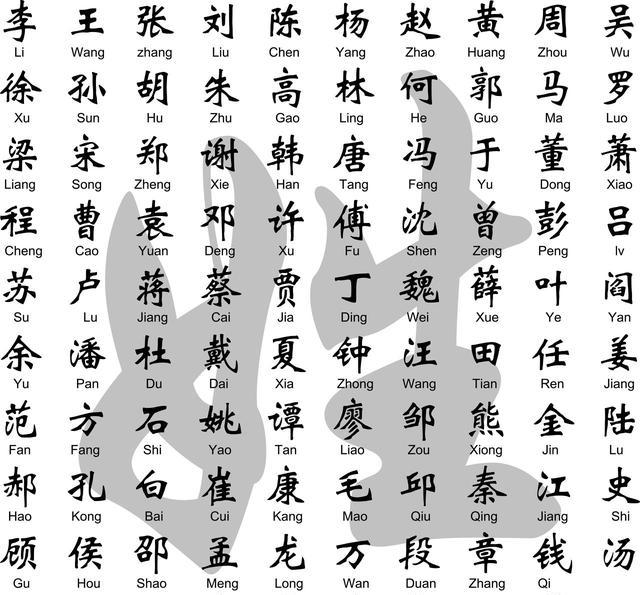 李 王 张 刘 陈 杨 赵 黄 周 吴
Li Wang zhang Liu Chen Yang Zhao Huang Zhou Wu
徐 孙 胡 朱 高 林 何 郭 马 罗
Xu Sun Hu Zhu Gao Ling He Guo Ma Luo
梁 宋 郑 谢 韩 唐 冯 于 董 萧
Liang Song Zheng Xie Han Tang Feng Yu Dong Xiao
程 曹 袁 邓 许 傅 沈 曾 彭 吕
Cheng Cao Yuan Deng Xu Fu Shen Zeng Peng lv
苏 卢 蒋 蔡 贾 丁 魏 薛 叶 阎
Su Lu Jiang Cai Jia Ding Wei Xue Ye Yan
余 潘 杜 戴 夏 钟 汪 田 任 姜
Yu Pan Du Dai Xia Zhong Wang Tian Ren Jiang
范 方 石 姚 谭 廖 邹 熊 金 陆
Fan Fang Shi Yao Tan Liao Zou Xiong Jin Lu
郝 孔 白 崔 康 毛 邱 秦 江 史
Hao Kong Bai Cui Kang Mao Qiu Qing Jiang Shi
顾 侯 邵 孟 龙 万 段 章 钱 汤
Gu Hou Shao Meng Long Wan Duan Zhang Qi
姓